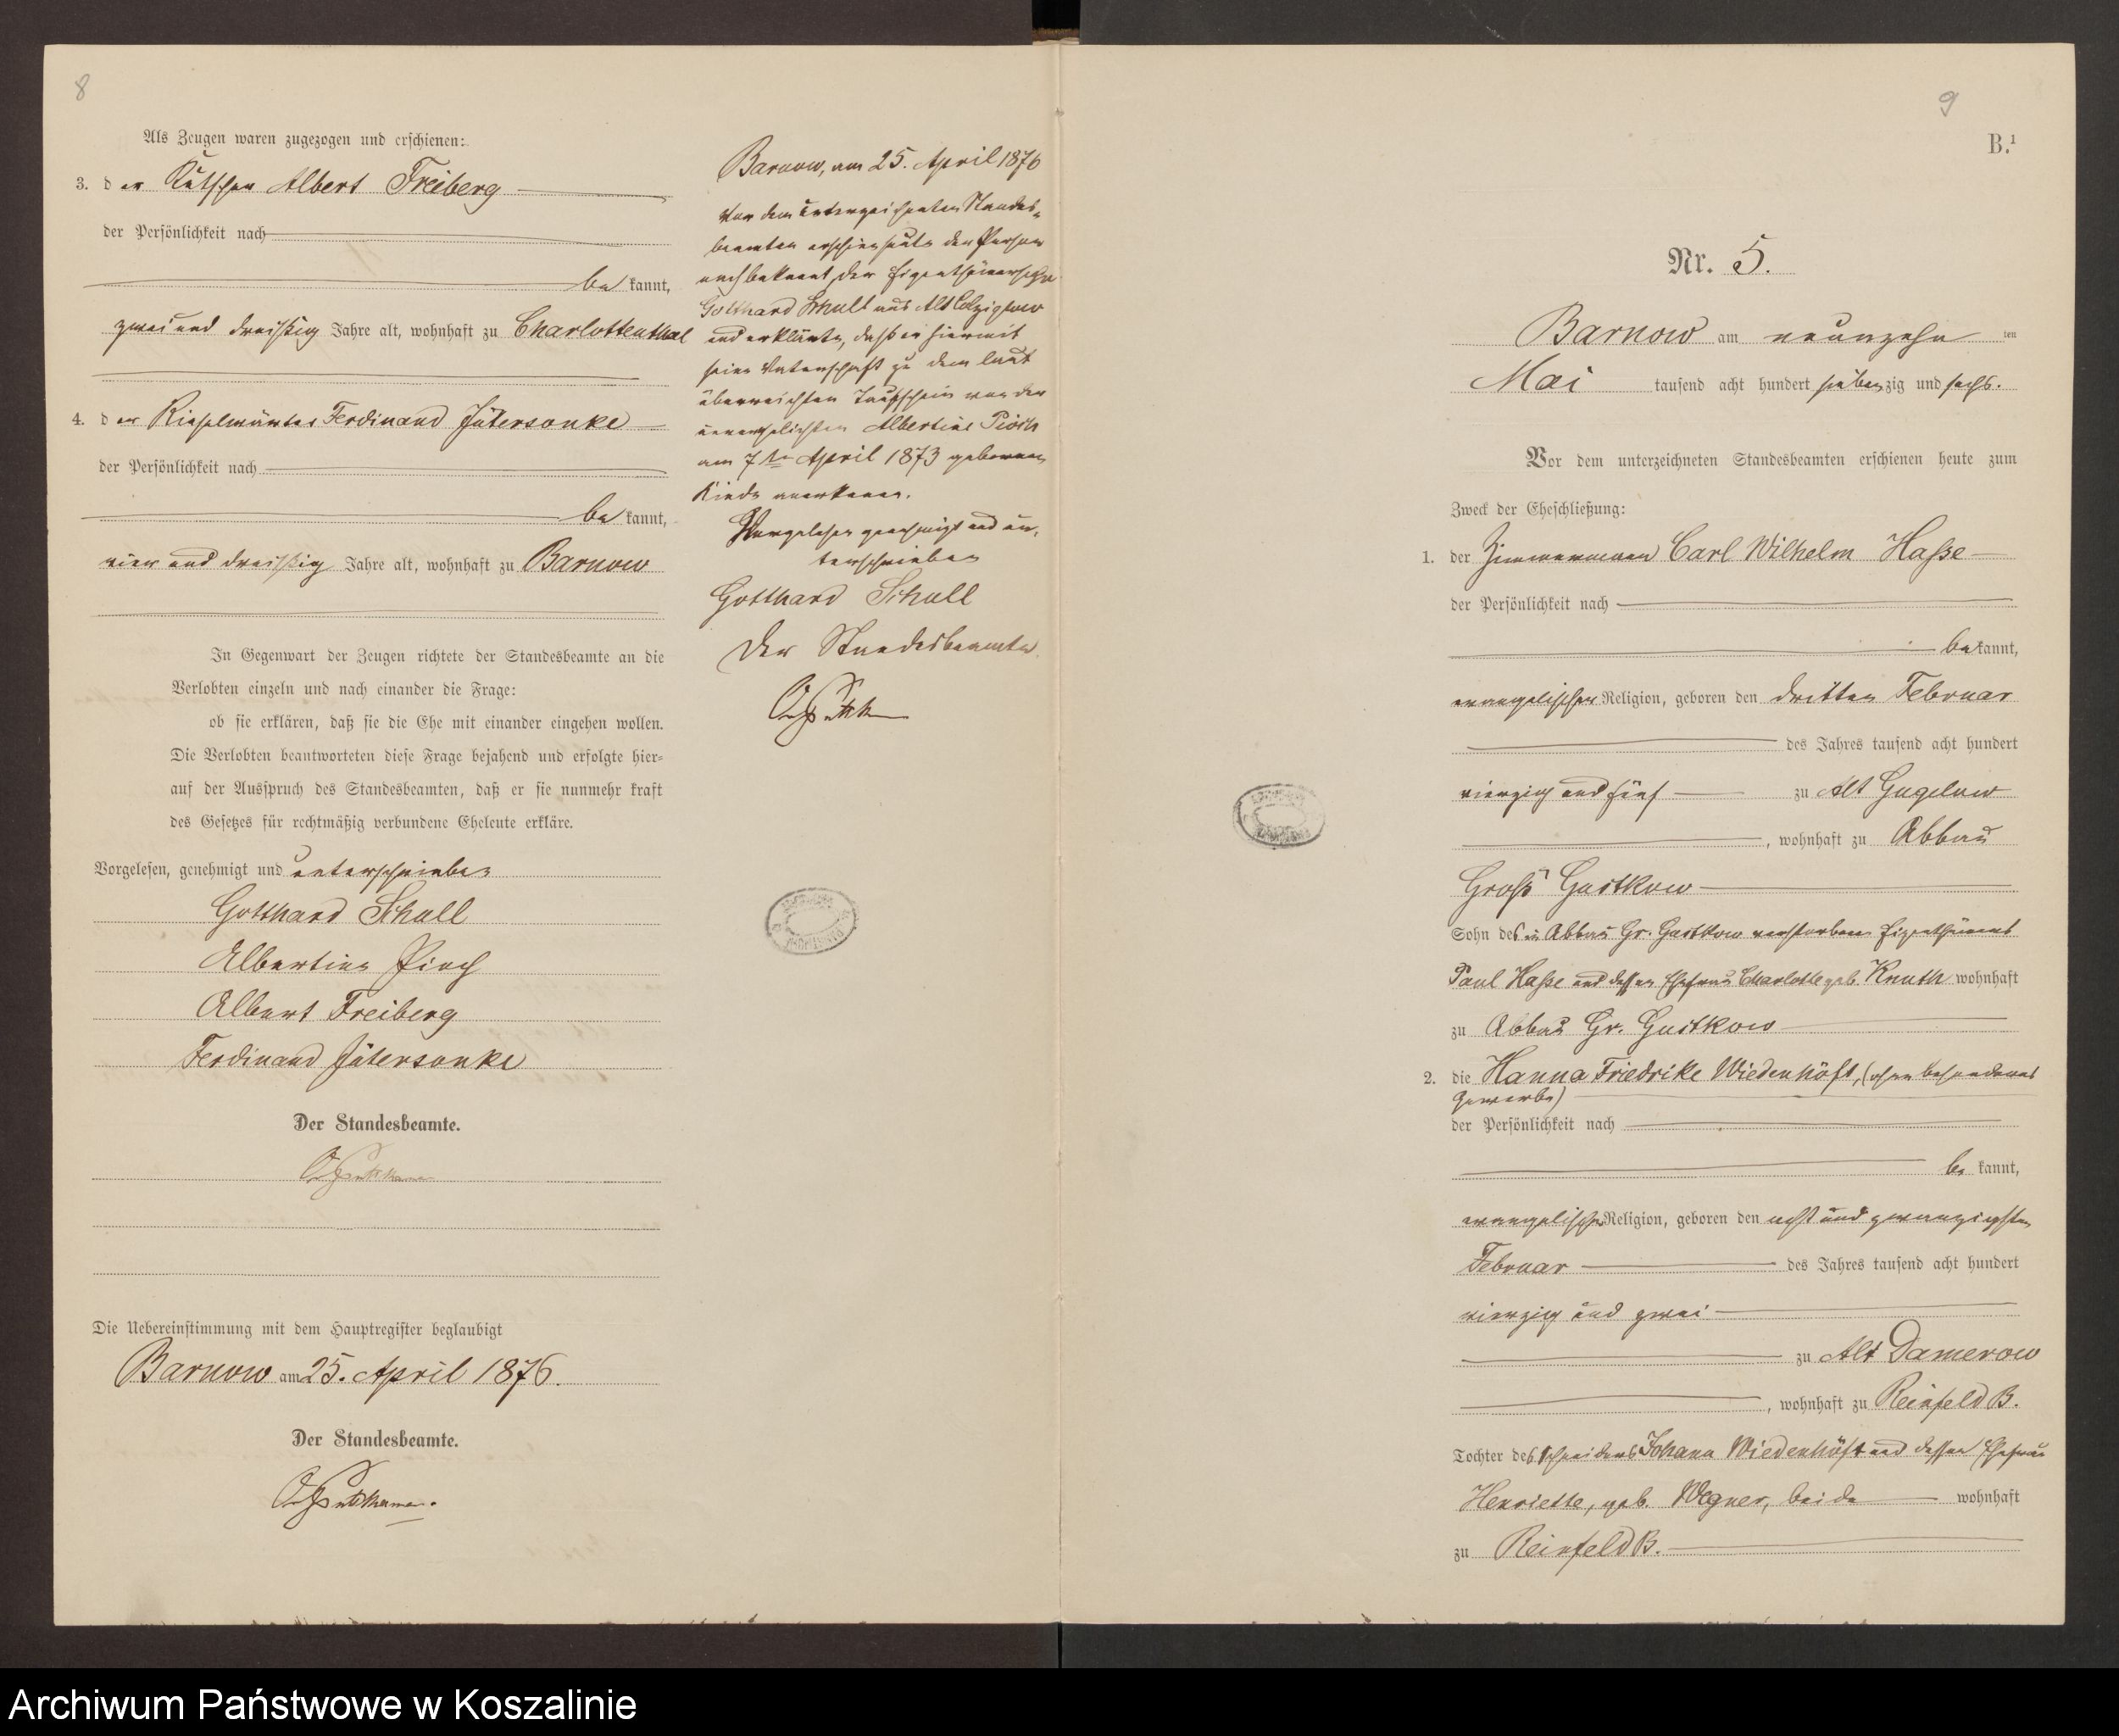 8
Als Zeugen waren zugezogen und erschienen:
3. der Kutscher Albert Freiberg
der Persönlichkeit nach
be kannt,
zwei und dreißig Jahre alt, wohnhaft zu Charlottenthal
4. der Rieselwärter Ferdinand Jütersonke
der Persönlichkeit nach
be kannt,
vier und dreißig Jahre alt, wohnhaft zu Barnow
In Gegenwart der Zeugen richtete der Standesbeamte an die
Verlobten einzeln und nach einander die Frage:
ob sie erklären, daß sie die Ehe mit einander eingehen wollen.
Die Verlobten beantworteten diese Frage bejahend und erfolgte hier-
auf der Ausspruch des Standesbeamten, daß er sie nunmehr kraft
des Gesetzes für rechtmäßig verbundene Eheleute erkläre.
Vorgelesen, genehmigt und unterschrieben
Gotthard Schull
Albertine Pioch
Albert Freiberg
Ferdinand Jütersonke
Der Standesbeamte.
Die Uebereinstimmung mit dem Hauptregister beglaubigt
Barnow am 25. April 1876.
Der Standesbeamte.
Barnow, am 25. April 1876
Vor dem unterzeichneten Standes-
beamten erschien heute der Person
nach bekannt, der
Gotthard Schull aus Alt Colziglow
und erklärte, daß er hiermit
seine Vaterschaft zu dem laut
überreichten Taufschein von der
unverehelichten Albertine Pioch
am 7ten April 1873 geborenen
Kinde anerkenne.
Vorgelesen genehmigt und un-
terschrieben
Gotthard Schull
Der Standesbeamte
9
B.¹
Nr. 5.
Barnow am neunzehn ten
Mai tausend acht hundert siebenzig und sechs.
Vor dem unterzeichneten Standesbeamten erschienen heute zum
Zweck der Eheschließung:
1. der Zimmermann Carl Wilhelm Haße
der Persönlichkeit nach
be kannt,
evangelischer Religion, geboren den dritten Februar
des Jahres tausend acht hundert
vierzig und fünf zu Alt Gugelow
, wohnhaft zu Abbau
Groß Gustkow
Sohn des in Abbau Gr. Gustkow verstorbenen Eigenthümers
Paul Haße und dessen Ehefrau Charlotte geb. Knuth wohnhaft
zu Abbau Gr. Gustkow
2. die Hanna Friedrike Wiedenhöft, (ohne besonderes
Gewerbe)
der Persönlichkeit nach
be kannt,
evangelischer Religion, geboren den acht und zwanzigsten
Februar des Jahres tausend acht hundert
vierzig und zwei
zu Alt Damerow
, wohnhaft zu Reinfeld B.
Tochter des Schneiders Johann Wiedenhöft und dessen Ehefrau
Henriette, geb. Wegner, beide wohnhaft
zu Reinfeld B.
Archiwum Państwowe w Koszalinie